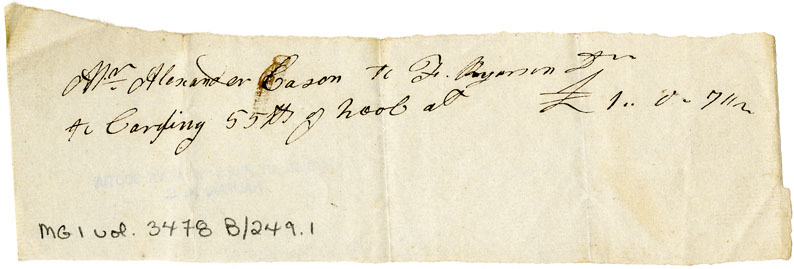 Mr. Alexander Eason to F. Ryerson Dr
to Carding 55 lb of Wool at £ 1 " 0 " 7 1/2
MG1 vol. 3478 B/249.1